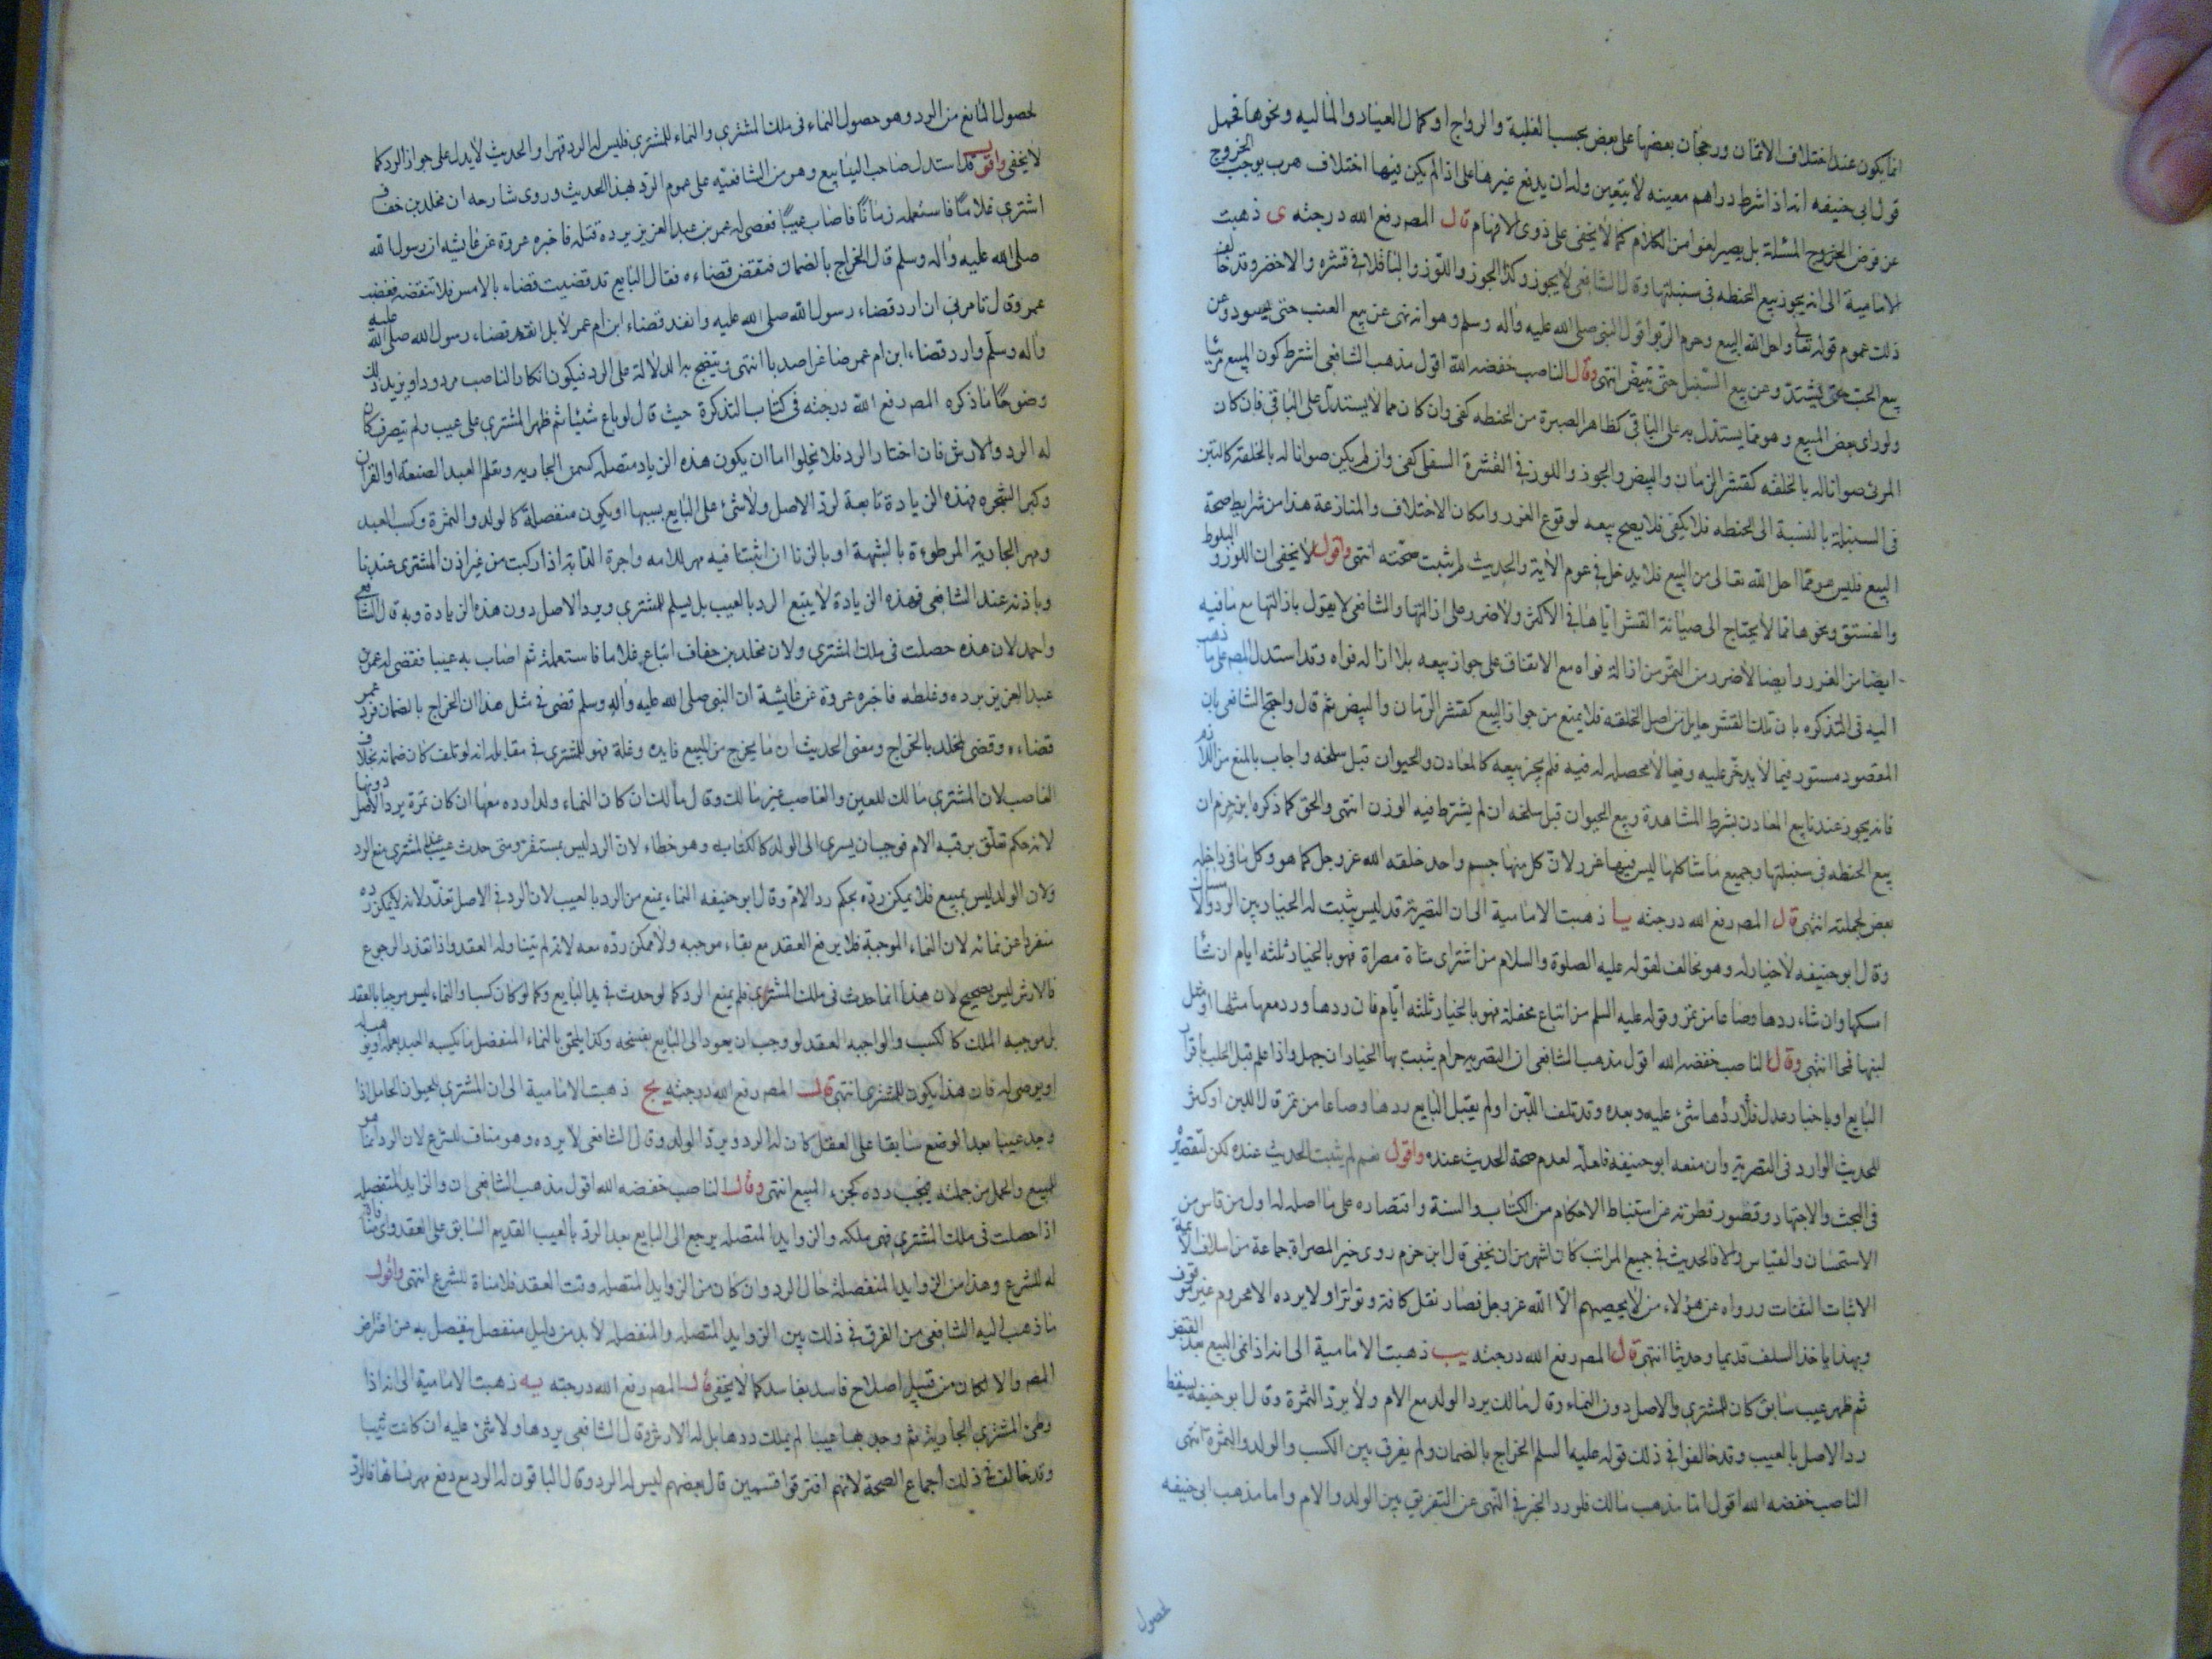 انما يكون عند اختلاف الاثمان ورجحان بعضها على بعض بحسب الغلبة والرواج او كمال العيار والمالية ونحوها فحمل
قول ابى حنيفه انه اذا شرط دراهم معينه لا يتعين وله ان يدفع غيرها على اذا لم يكن فيها اختلاف هرب يوجب الخروج
عن فرض الخروج المسئلة بل يصير لغوا من الكلام كما لا يخفى على ذوى الافهام قال المصه رفع الله درجته ى ذهبت
الامامية الى انه يجوز بيع الحنطه فى سنبلتها وقال الشافعى لا يجوز وكذا الجوز واللوز والباقلا فى قشره والاخضر وقد خالف فى
ذلك عموم قوله تعالى واحل الله البيع وحرم الربوا اقول النبى صلى الله عليه واله وسلم وهو انه نهى عن بيع العنب حتى يسود وعن
بيع الحب حتى يشتد وعن بيع السنبل حتى تبيض انتهى وقال الناصب خفضه الله اقول مذهب الشافعى اشترط كون المبيع مرئيا
ولو راى بعض المبيع وهو مما يستدل به على الباقى كظاهر الصبرة من الحنطه كفى وان كان مما لا يستدل على الباقى فان كان
المرئى صوانا له بالخلقه كقشر الرمان والبيض والجوز واللوز فى القشرة السفلى كفى وان لم يكن صوانا له بالخلقة كالتبن
فى السنبلة بالنسبة الى الحنطه فلا يكفى فلا يصح بيعه لوقوع الغرر وامكان الاختلاف والمنازعة هذا من شرايط صحة
البيع فليس هو مما احل الله تعالى من البيع فلا يدخل فى عموم الاية والحديث لم يثبت صحته انتهى واقول لا يخفى ان اللوز و البلوط
والفستق ونحوها مما لا يحتاج الى صيانة القشر اياها فى الاكثر ولا ضرر على ازالتها والشافعى لا يقول بازالتها مع ما فيه
ايضا من الغرر وايضا لا ضرر من التمر من ازالة نواه مع الاتفاق على جواز بيعه بلا ازاله نواه وقد استدل المصه على ما ذهب
اليه فى التذكره بان تلك القشر حايل من اصل الخلقه فلا يمنع من جواز البيع كقشر الرمان والبيض ثم قال واحتج الشافعى بان
المقصود مستور فيما لا يدخر عليه وفيما لا محصله له فيه فلم يجز بيعه كالمعادن والحيوان قبل سلخه واجاب بالمنع من اللازم
فانه يجوز عندنا بيع المعادن بشرط المشاهدة وبيع الحيوان قبل سلخه ان لم يشترط فيه الوزن انتهى والحق كما ذكره ابن حزم ان
بيع الحنطه فى سنبلتها وجميع ما شاكلها ليس فيها غرر لان كل منها جسم واحد خلقه الله عز وجل كما هو وكل ما فى داخله
بعض لجملته انتهى قال المصه رفع الله درجته يا ذهبت الامامية الى ان التصرية تدليس يثبت له الخيار بين الرد والامساك
وقال ابو حنيفه لا خيار له وهو مخالف لقوله عليه الصلوة والسلام من اشترى شاة مصراة فهو بالخيار ثلثه ايام ان شاء
امسكها وان شاء ردها وصاعا من تمر وقوله عليه السلم من ابتاع محفلة فهو بالخيار ثلثه ايام فان ردها ورد معها مثلها او مثل
لبنها قمحا انتهى وقال الناصب خفضه الله اقول مذهب الشافعى ان التصريه حرام يثبت بها الخيار ان جهل واذا علم قبل الحلب باقرار
البايع او باخبار عدل فلا ردها شىء عليه وبعده وقد تلف اللبن او لم يقبل البايع ردها وصاعا من تمر قل اللبن او كثر
للحديث الوارد فى التصرية وان منعه ابو حنيفه فلعله لعدم صحة الحديث عنده واقول نعم لم يثبت الحديث عنده لكن لتقصيره
فى البحث والاجتهاد وقصور فطرته عن استنباط الاحكام من الكتاب والسنة واقتصاره على ما اصله له اول من قاس من
الاستحسان والقياس والا فالحديث فى جميع المراتب كان اشهر من ان يخفى قال ابن حزم روى خبر المصراة جماعة من اسلاف الائمة
الاثبات الثقات ورواه عن هؤلاء من لا يحصيهم الا الله عز وجل فصار نقل كافة وتواترا ولا يرده الا محروم غير موفق
وبهذا ياخذ السلف قديما وحديثا انتهى قال المصه رفع الله درجته يب ذهبت الامامية الى انه اذا نمى المبيع بعد القبض
ثم ظهر عيب سابق كان للمشترى والاصل دون النماء وقال مالك يرد الولد مع الام ولا يرد الثمرة وقال ابو حنيفه يسقط
رد الاصل بالعيب وقد خالفوا فى ذلك قوله عليه السلم الخراج بالضمان ولم يفرق بين الكسب والولد والثمرة انتهى
الناصب خفضه الله اقول اما مذهب مالك فلورد الخبر فى النهى عن التفريق بين الولد والام واما مذهب ابى حنيفه
لحصول
لحصول المانع من الرد وهو حصول النماء فى ملك المشترى والنماء للمشترى فليس له الرد قهرا والحديث لا يدل على جواز الرد كما
لا يخفى واقول قد استدل صاحب الينابيع وهو من الشافعيه على عموم الرد بهذا الحديث وروى شارحه ان مخلد بن خفاف
اشترى غلاما فاستعمله زمانا فاصاب عيبا فقضى له عمر بن عبد العزيز برده فتله فاخبره عروة عن عايشه ان رسول الله
صلى الله عليه واله وسلم قال الخراج بالضمان فنقض قضاءه فقال البايع قد قضيت قضاء بالامس فلا تنقضه فغضب
عمر وقال تامرنى ان ارد قضاء رسول الله صلى الله عليه وانفذ قضاء ابن ام عمر لا بل انفذ قضاء رسول الله صلى الله عليه
واله وسلم وارد قضاء ابن ام عمر صاغرا صدبا انتهى ويتضح به الدلالة على الرد فيكون انكار الناصب مردودا ويزيد ذلك
وضوحا ما ذكره المصه رفع الله درجته فى كتاب التذكرة حيث قال لو باع شيئا ثم ظهر المشترى على عيب ولم يتصرف كان
له الرد والارش فان اختار الرد فلا يخلوا اما ان يكون هذه الزياد متصله كسمن الجاريه وتعلم العبد الصنعه او القران
وكبر الشجره فهذه الزيادة تابعة لرد الاصل ولا شىء على البايع بسببها او يكون منفصلة كالولد والثمرة وكسب العبد
ومهر الجارية الموطوءة بالشبهة او بالزنا ان اثبتنا فيه مهر للامه واجرة الدابة اذا ركبت من غير اذن المشترى عندنا
وباذنه عند الشافعى فهذه الزيادة لا يتبع الرد بالعيب بل يسلم للمشترى ويرد الاصل دون هذه الزيادة وبه قال الشافعى
واحمد لان هذه حصلت فى ملك المشترى ولان مخلد بن خفاف ابتاع غلاما فاستعمله ثم اصاب به عيبا فقضى له عمر بن
عبد العزيز برده وغلطه فاخبره عروة عن عايشة ان النبى صلى الله عليه واله وسلم قضى فى مثل هذا ان الخراج بالضمان فرد عمر
قضاءه وقضى لمخلد بالخراج ومعنى الحديث ان ما يخرج من المبيع فايده وغلة فهو للمشترى فى مقابله انه لو تلف كان ضمانه بخلاف
الغاصب لان المشترى مالك للعين والغاصب غير مالك وقال مالك ان كان النماء ولدا رده معها ان كان ثمرة يرد الاصل دونها
لانه حكم تعلق برقبه الام فوجب ان يسرى الى الولد كالكتابه وهو خطاء لان الرد ليس بمستقر ومتى حدث عيب على المشترى منع الرد
ولان الولد ليس بمبيع فلا يمكن رده بحكم رد الام وقال ابو حنيفه النماء يمنع من الرد بالعيب لان الرد فى الاصل تعذر لانه لا يمكن رده
منفردا عن نمائه لان النماء الموجبة فلا يرفع العقد مع بقاء موجبه ولا ممكن رده معه لانه لم يتناوله العقد واذا تعذر الرجوع
فالارش ليس بصحيح لان هذا انما حدث فى ملك المشترى فلم يمنع الرد كما لو حدث فى يد البايع وكما لو كان كسبا والنماء ليس موجبا بالعقد
بل موجبه الملك كالكسب والواجبه العقد لو وجب ان يعود الى البايع بفسخه وكذا يلحق بالنماء المنفصل ما يكسبه العبد بعمله او يوهب له
او يوصى له فان هذا يكون للمشترى انتهى قال المصه رفع الله درجته يج ذهبت الامامية الى ان المشترى للحيوان الحامل اذا
وجد عيبا بعد الوضع سابقا على العقد كان له الرد ويرد الولد وقال الشافعى لا يرده وهو مناف للشرع لان الرد انما هو
للمبيع والحمل من جملته فيجب رده كجزء المبيع انتهى وقال الناصب خفضه الله اقول مذهب الشافعى ان والزايد المنفصله
اذا حصلت فى ملك المشترى فهى ملكه والزوايد المتصله يرجع الى البايع بعد الرد بالعيب القديم السابق على العقد واى منافاة
له للشرع وهذا من الزوايد المنفصلة حال الرد وان كان من الزوايد المتصله وقت العقد فلا مناة للشرع انتهى واقول
ما ذهب اليه الشافعى من الفرق فى ذلك بين الزوايد المتصله والمنفصله لا بد من دليل منفصل يفصل به عن اعتراض
المصه والا لكان من قبيل اصلاح فاسد بفاسد كما لا يخفى قال المصه رفع الله درجته يه ذهبت الامامية الى انه اذا
وطى المشترى الجارية ثم وجد بها عيبا لم يملك ردها بل له الارش وقال الشافعى يردها ولا شىء عليه ان كانت ثيبا
وقد خالف فى ذلك اجماع الصحة لانهم افترقوا قسمين قال بعضهم ليس له الرد وقال الباقون له الرد مع دفع مهر نسائها فالرد